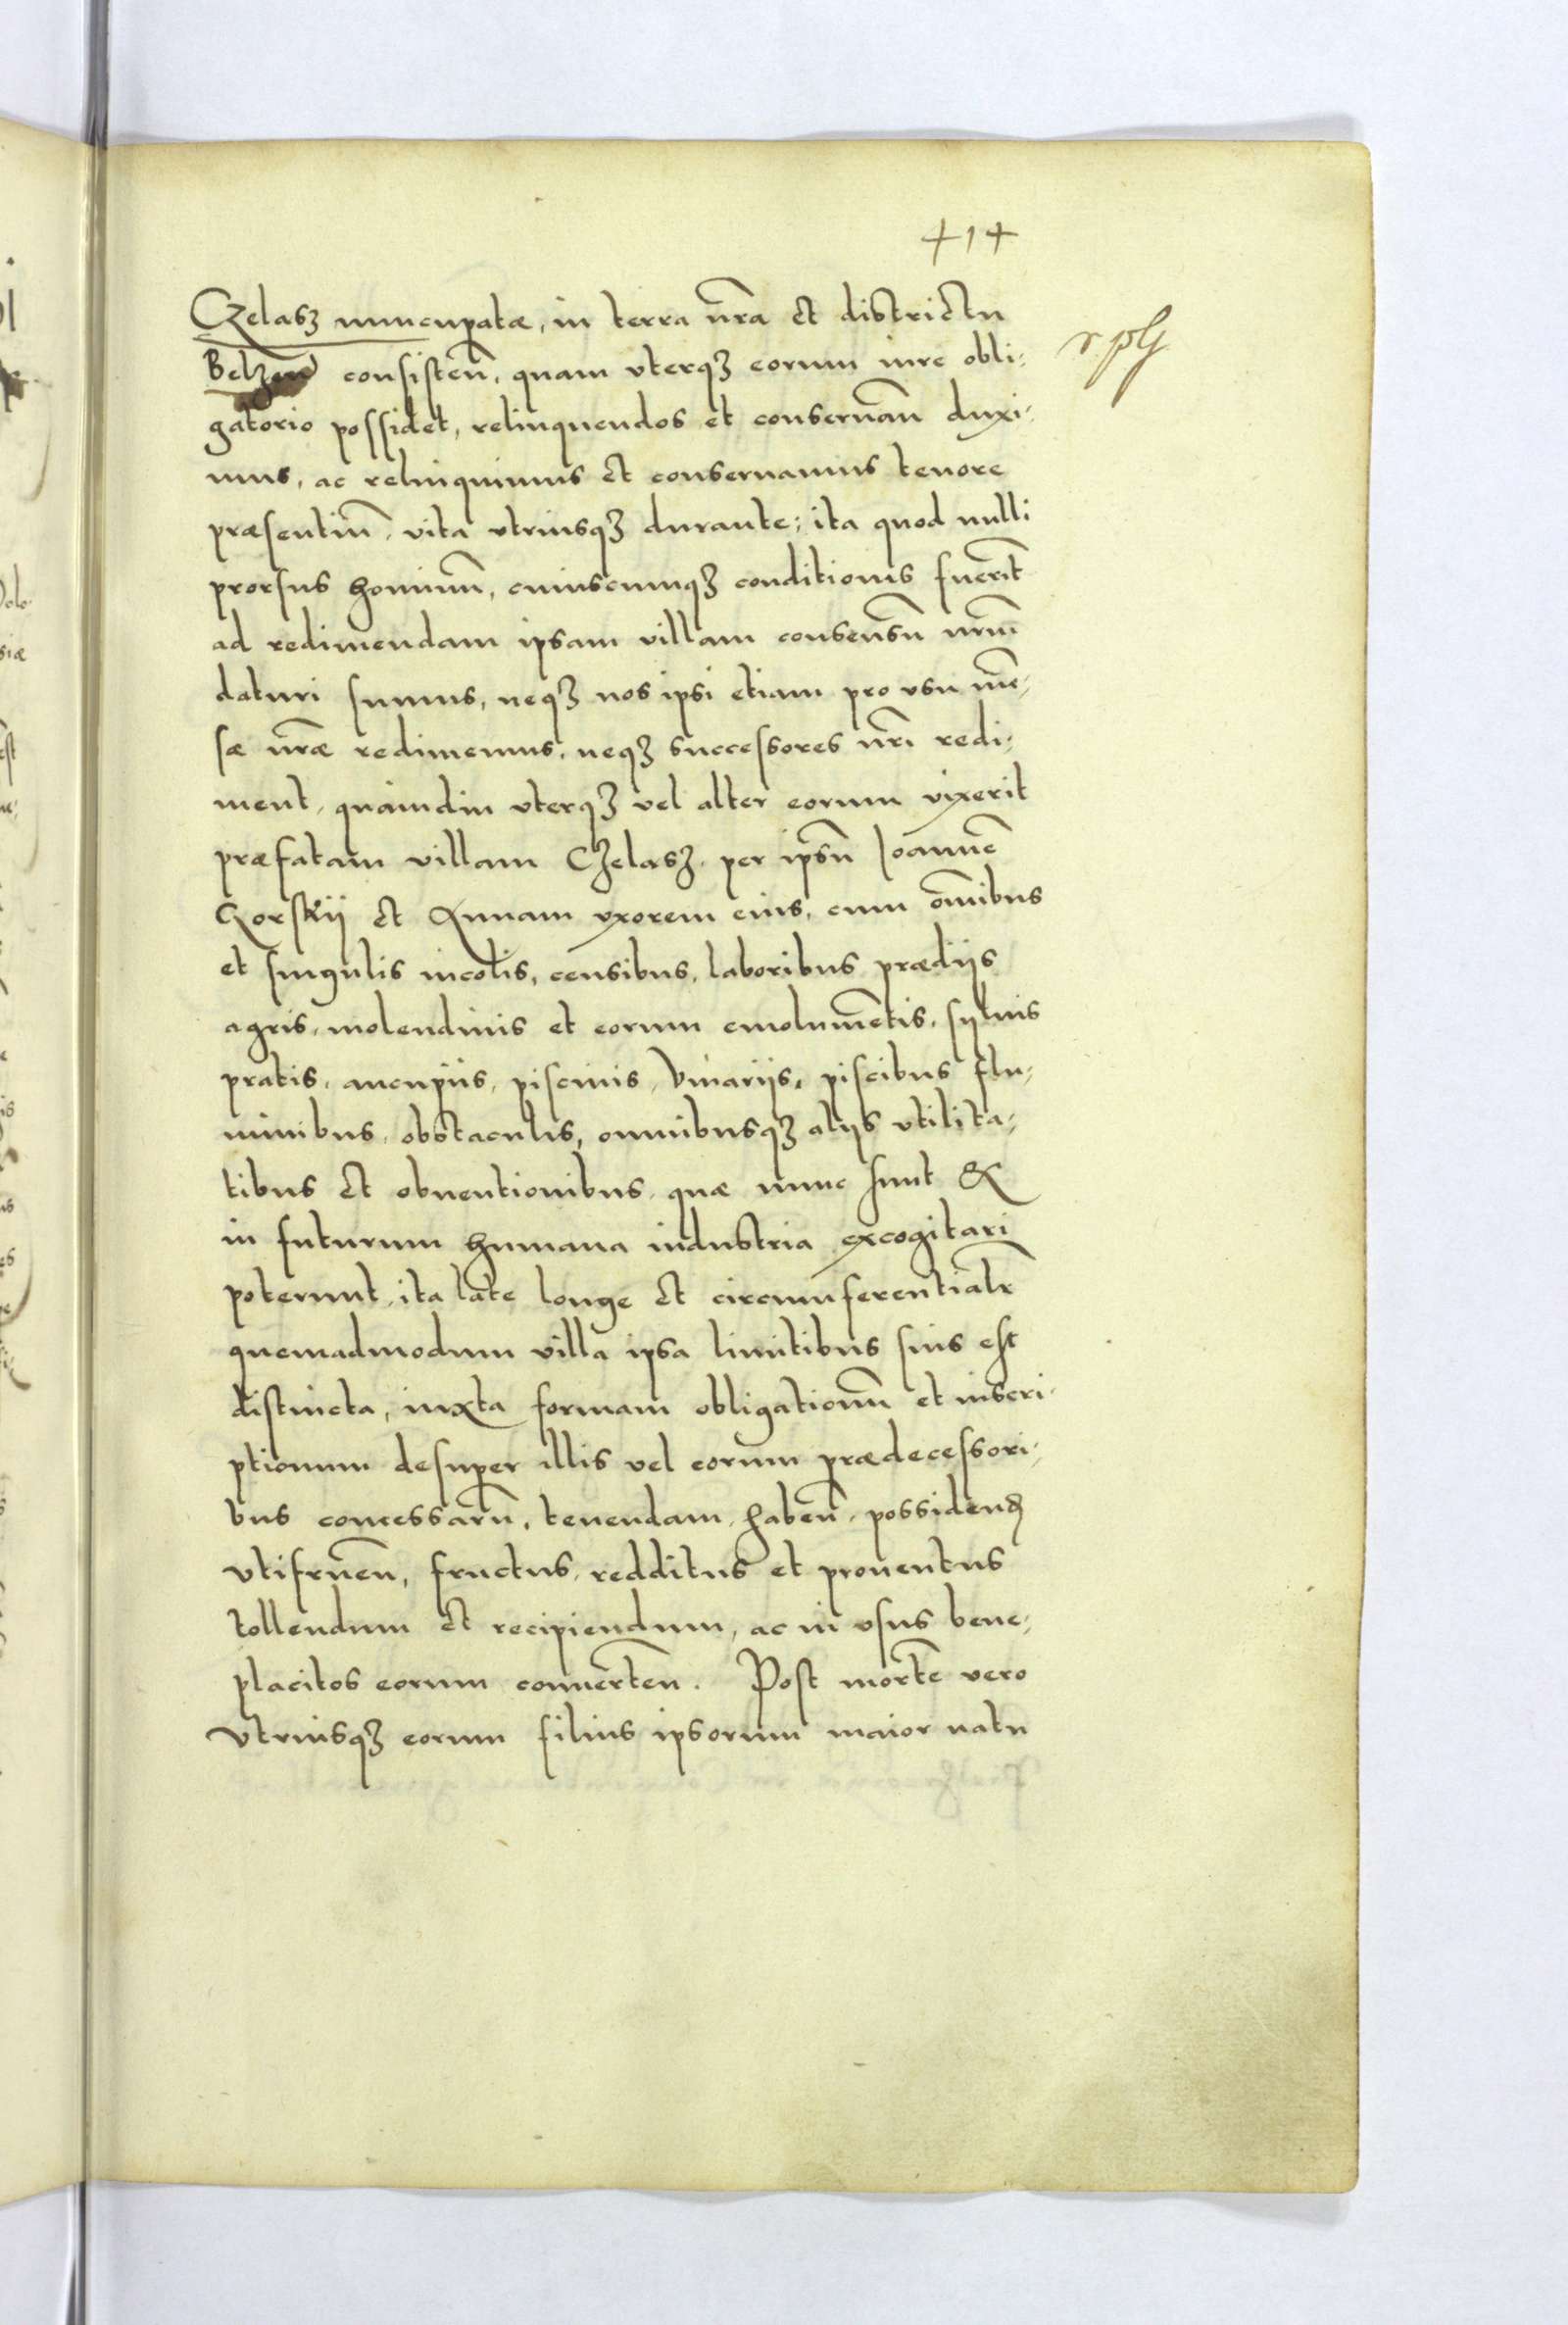 414
Czelasz nuncupatæ, in terra nr̃a et districtu
Belzen̄ consisten̄, quam vterqȝ eorum iure obli-
gatorio possidet, relinquendos et conseruan̄ duxi-
mus, ac relinquimus et conseruamus tenore
præsentiū, vita vtriusqȝ durante; ita quod nulli
prorsus hominū, cuiuscumqȝ conditionis fuerit
ad redimendam ipsam villam consensū nr̃m
daturi sumus, neqȝ nos ipsi etiam pro vsu mē-
sæ nr̃æ redimemus, neqȝ successores nr̃i redi-
ment, quamdiu vterqȝ vel alter eorum vixerit
præfatam villam Czelasz per ipsū Ioannē
Gorskij et Annam vxorem eius, cum om̄ibus
et singulis incolis, censibus, laboribus prædijs
agris, molendinis et eorum emolumētis, syluis
pratis, aucupijs, piscinis, viuarijs, piscibus flu-
minibus, obstaculis, omnibusqȝ alijs vtilita-
tibus et obuentionibus, quæ nunc sunt &
in futurum humana industria excogitari
poterunt, ita late longe et circumferentialr̃
quemadmodum villa ipsa limitibus suis est
distincta, iuxta formam obligationū et inscri-
ptionum desuper illis vel eorum prædecessori-
bus concessarū, tenendam, haben̄, possidend̃
vtifruen̄, fructus, redditus et prouentus
tollendum et recipiendum, ac in vsus bene-
placitos eorum conuerten̄. Post mortē vero
vtriusqȝ eorum filius ipsorum maior natu